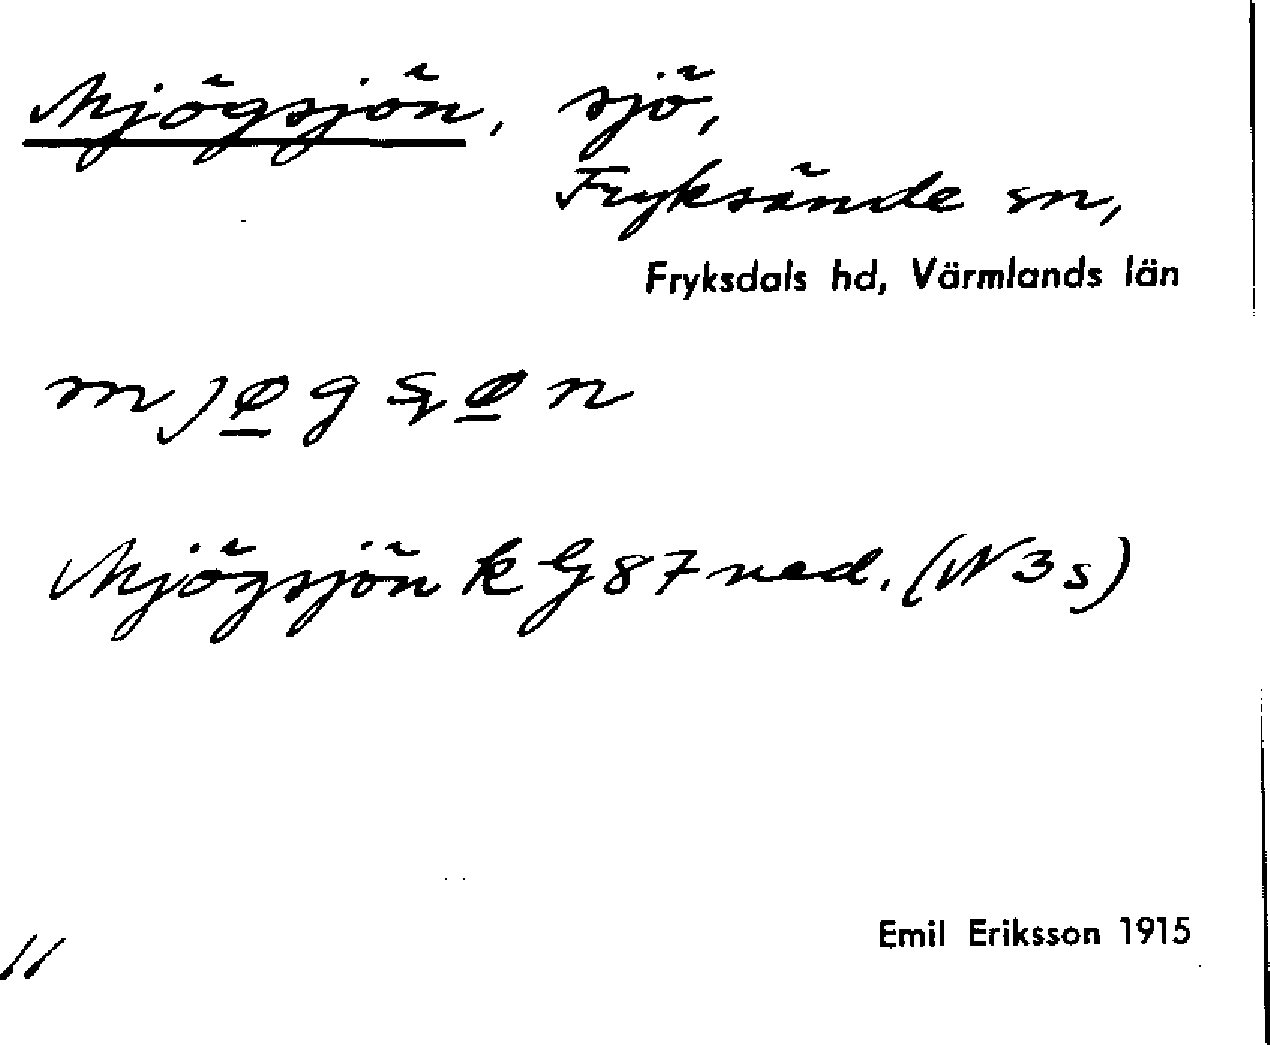 Mjögsjön, sjö,
Fryksände sn,
Fryksdals hd, Värmlands län
mjøgʂøn
Mjögsjön k G 87 ned. (N 3 s)
Emil Eriksson 1915